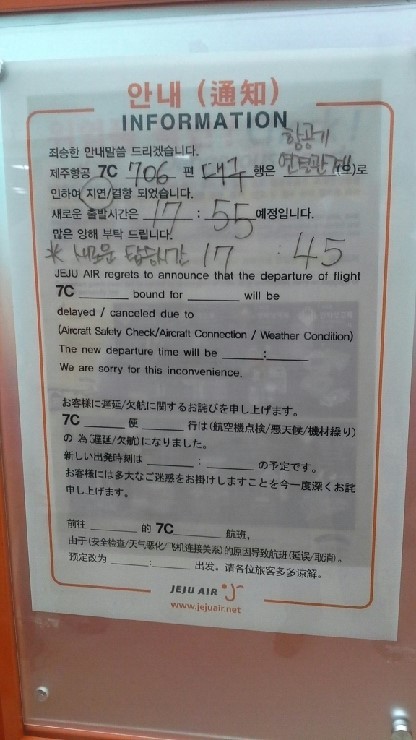 안내 (通知)
INFORMATION
죄송한 안내말씀 드리겠습니다.
항공기
제주항공 7C 706 편 대구 행은 연결관계 (으)로
인하여 지연/결항 되었습니다.
새로운 출발시간은 17 : 55 예정입니다.
많은 양해 부탁 드립니다.
* 새로운 탑승시간 17 : 45
JEJU AIR regrets to announce that the departure of flight
7C ______ bound for ______ will be
delayed / canceled due to
(Aircraft Safety Check/Aircraft Connection / Weather Condition)
The new departure time will be ____:____
We are sorry for this inconvenience.
お客様に遅延/欠航に関するお詫びを申し上げます。
7C ______ 便 ______ 行は(航空機点検/悪天候/機材繰り)
の 為(遅延/欠航)になりました。
新しい出発時刻は ______ : ______ の予定です。
お客様には多大なご迷惑をお掛けしますことを今一度深くお詫
申し上げます。
前往 ______ 的 7C ______ 航班,
由于(安全检查/天气恶化/飞机连接关系)的原因导致航班(延误/取消)。
预定改为 ____:____ 出发。请各位旅客多多谅解。
JEJU AIR
www.jejuair.net